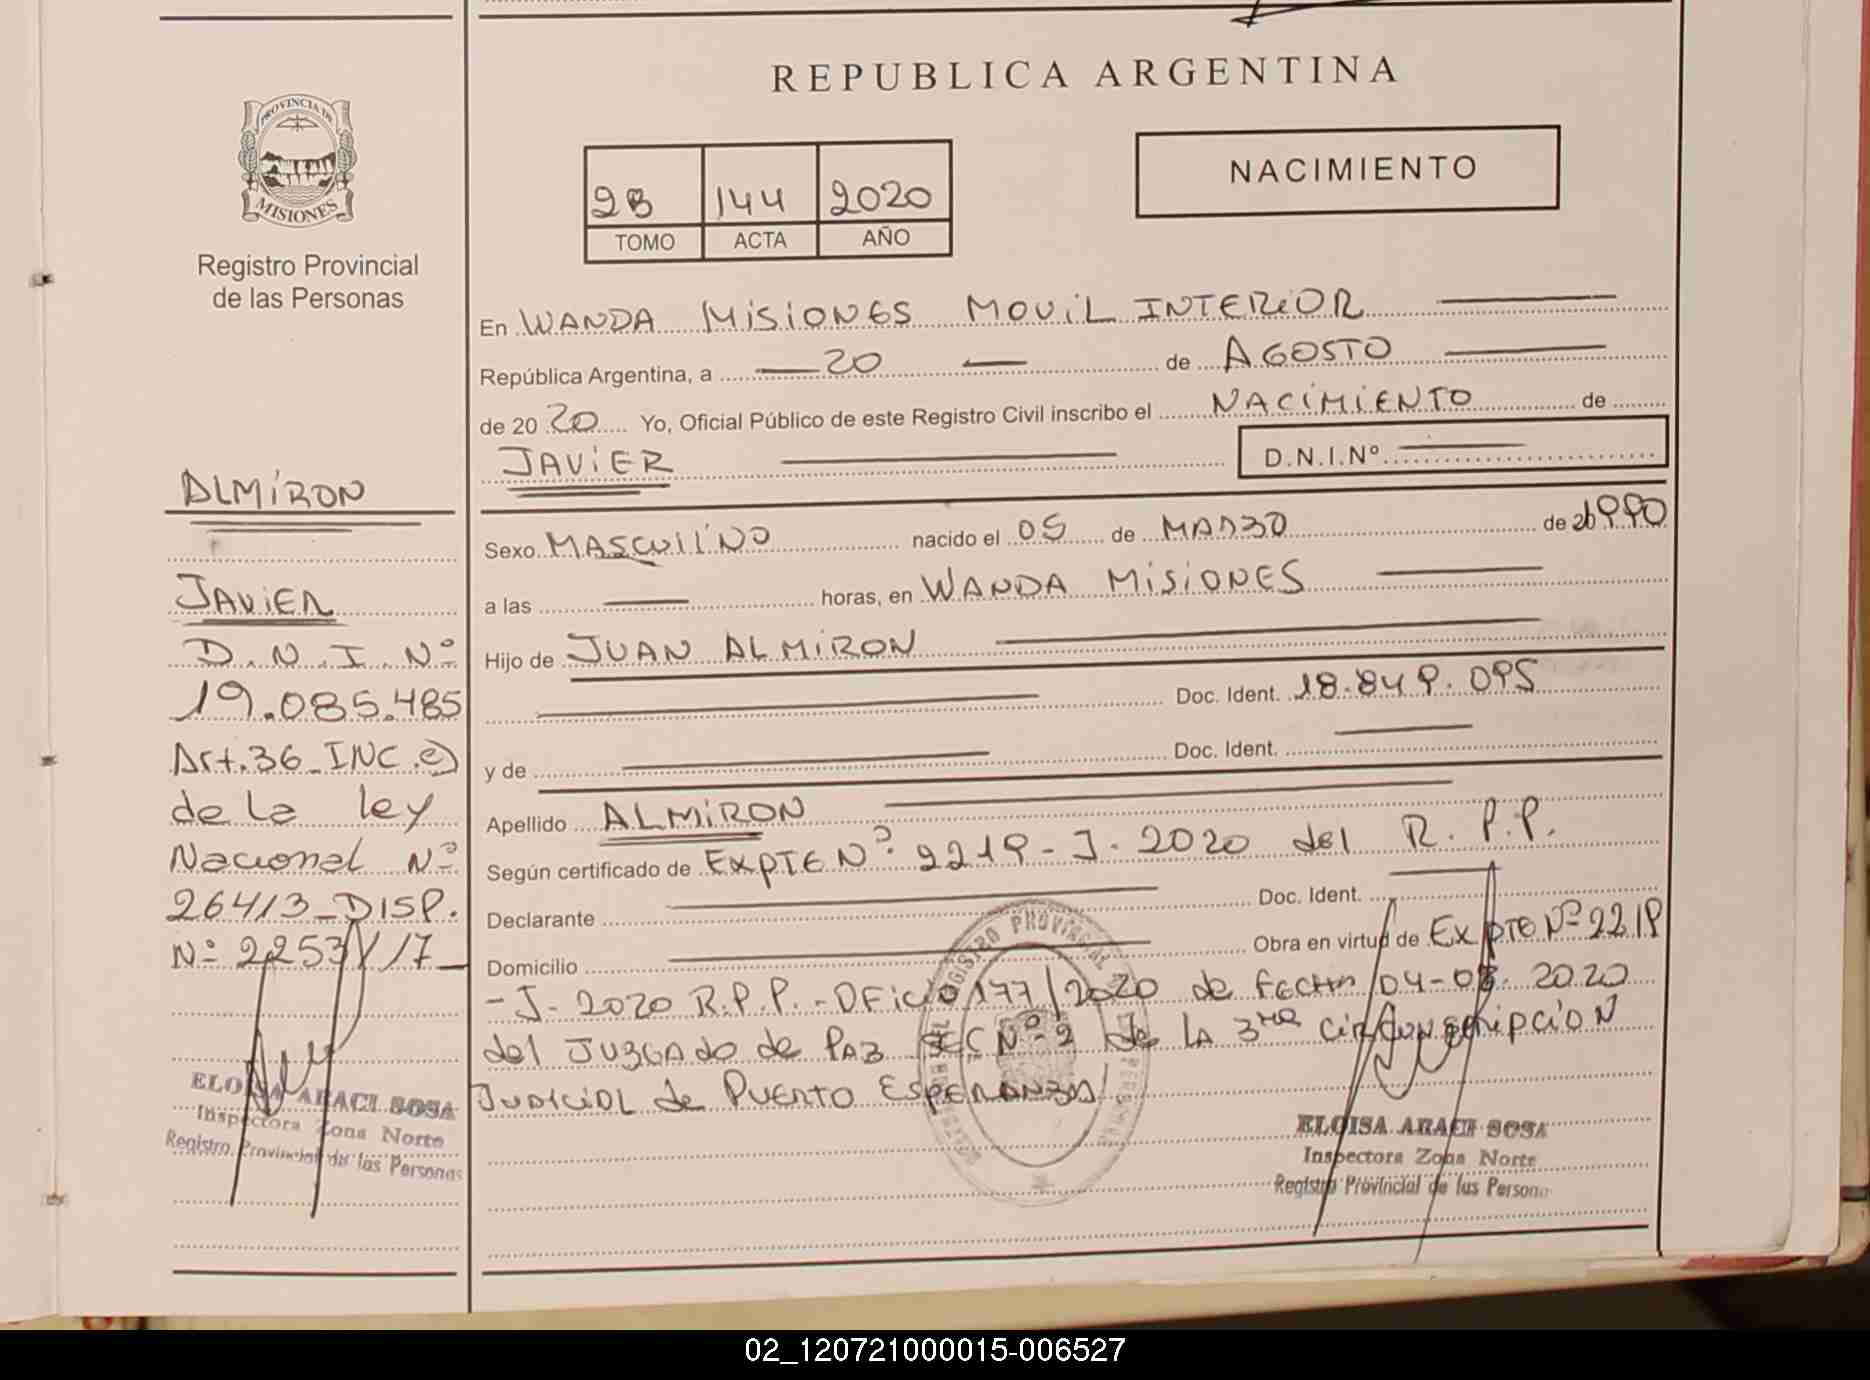 REPUBLICA ARGENTINA
PROVINCIA DE
MISIONES
Registro Provincial
de las Personas
2B 144 2020
TOMO ACTA AÑO
NACIMIENTO
En WANDA MISIONES MOVIL INTERIOR
República Argentina, a 20 de AGOSTO
de 20 20 Yo, Oficial Público de este Registro Civil inscribo el NACIMIENTO de
JAVIER D.N.I.Nº
Sexo MASCULINO nacido el 05 de MARZO de 1990
a las horas, en WANDA MISIONES
Hijo de JUAN ALMIRON
Doc. Ident. 18.849.095
y de Doc. Ident.
Apellido ALMIRON
Según certificado de EXPTE Nº 2219-J-2020 del R.P.P.
Declarante Doc. Ident.
Domicilio Obra en virtud de EXPTE Nº 2219
-J-2020 R.P.P.-OFICIO 177/2020 de FECHA 04-03-2020
del JUZGADO de PAZ SEC Nº 2 de LA 3ra CIRCUNSCRIPCION
JUDICIAL de PUERTO ESPERANZA
ALMIRON
JAVIER
D.N.I. Nº
19.085.485
Art. 36_INC.e)
de La ley
Nacional Nº
26413_DISP.
Nº 2253/17_
ELOISA ARACI SOSA
Inspectora Zona Norte
Registro Provincial de las Personas
REGISTRO PROVINCIAL
ELOISA ARACI SOSA
Inspectora Zona Norte
Registro Provincial de las Persona
02_120721000015-006527